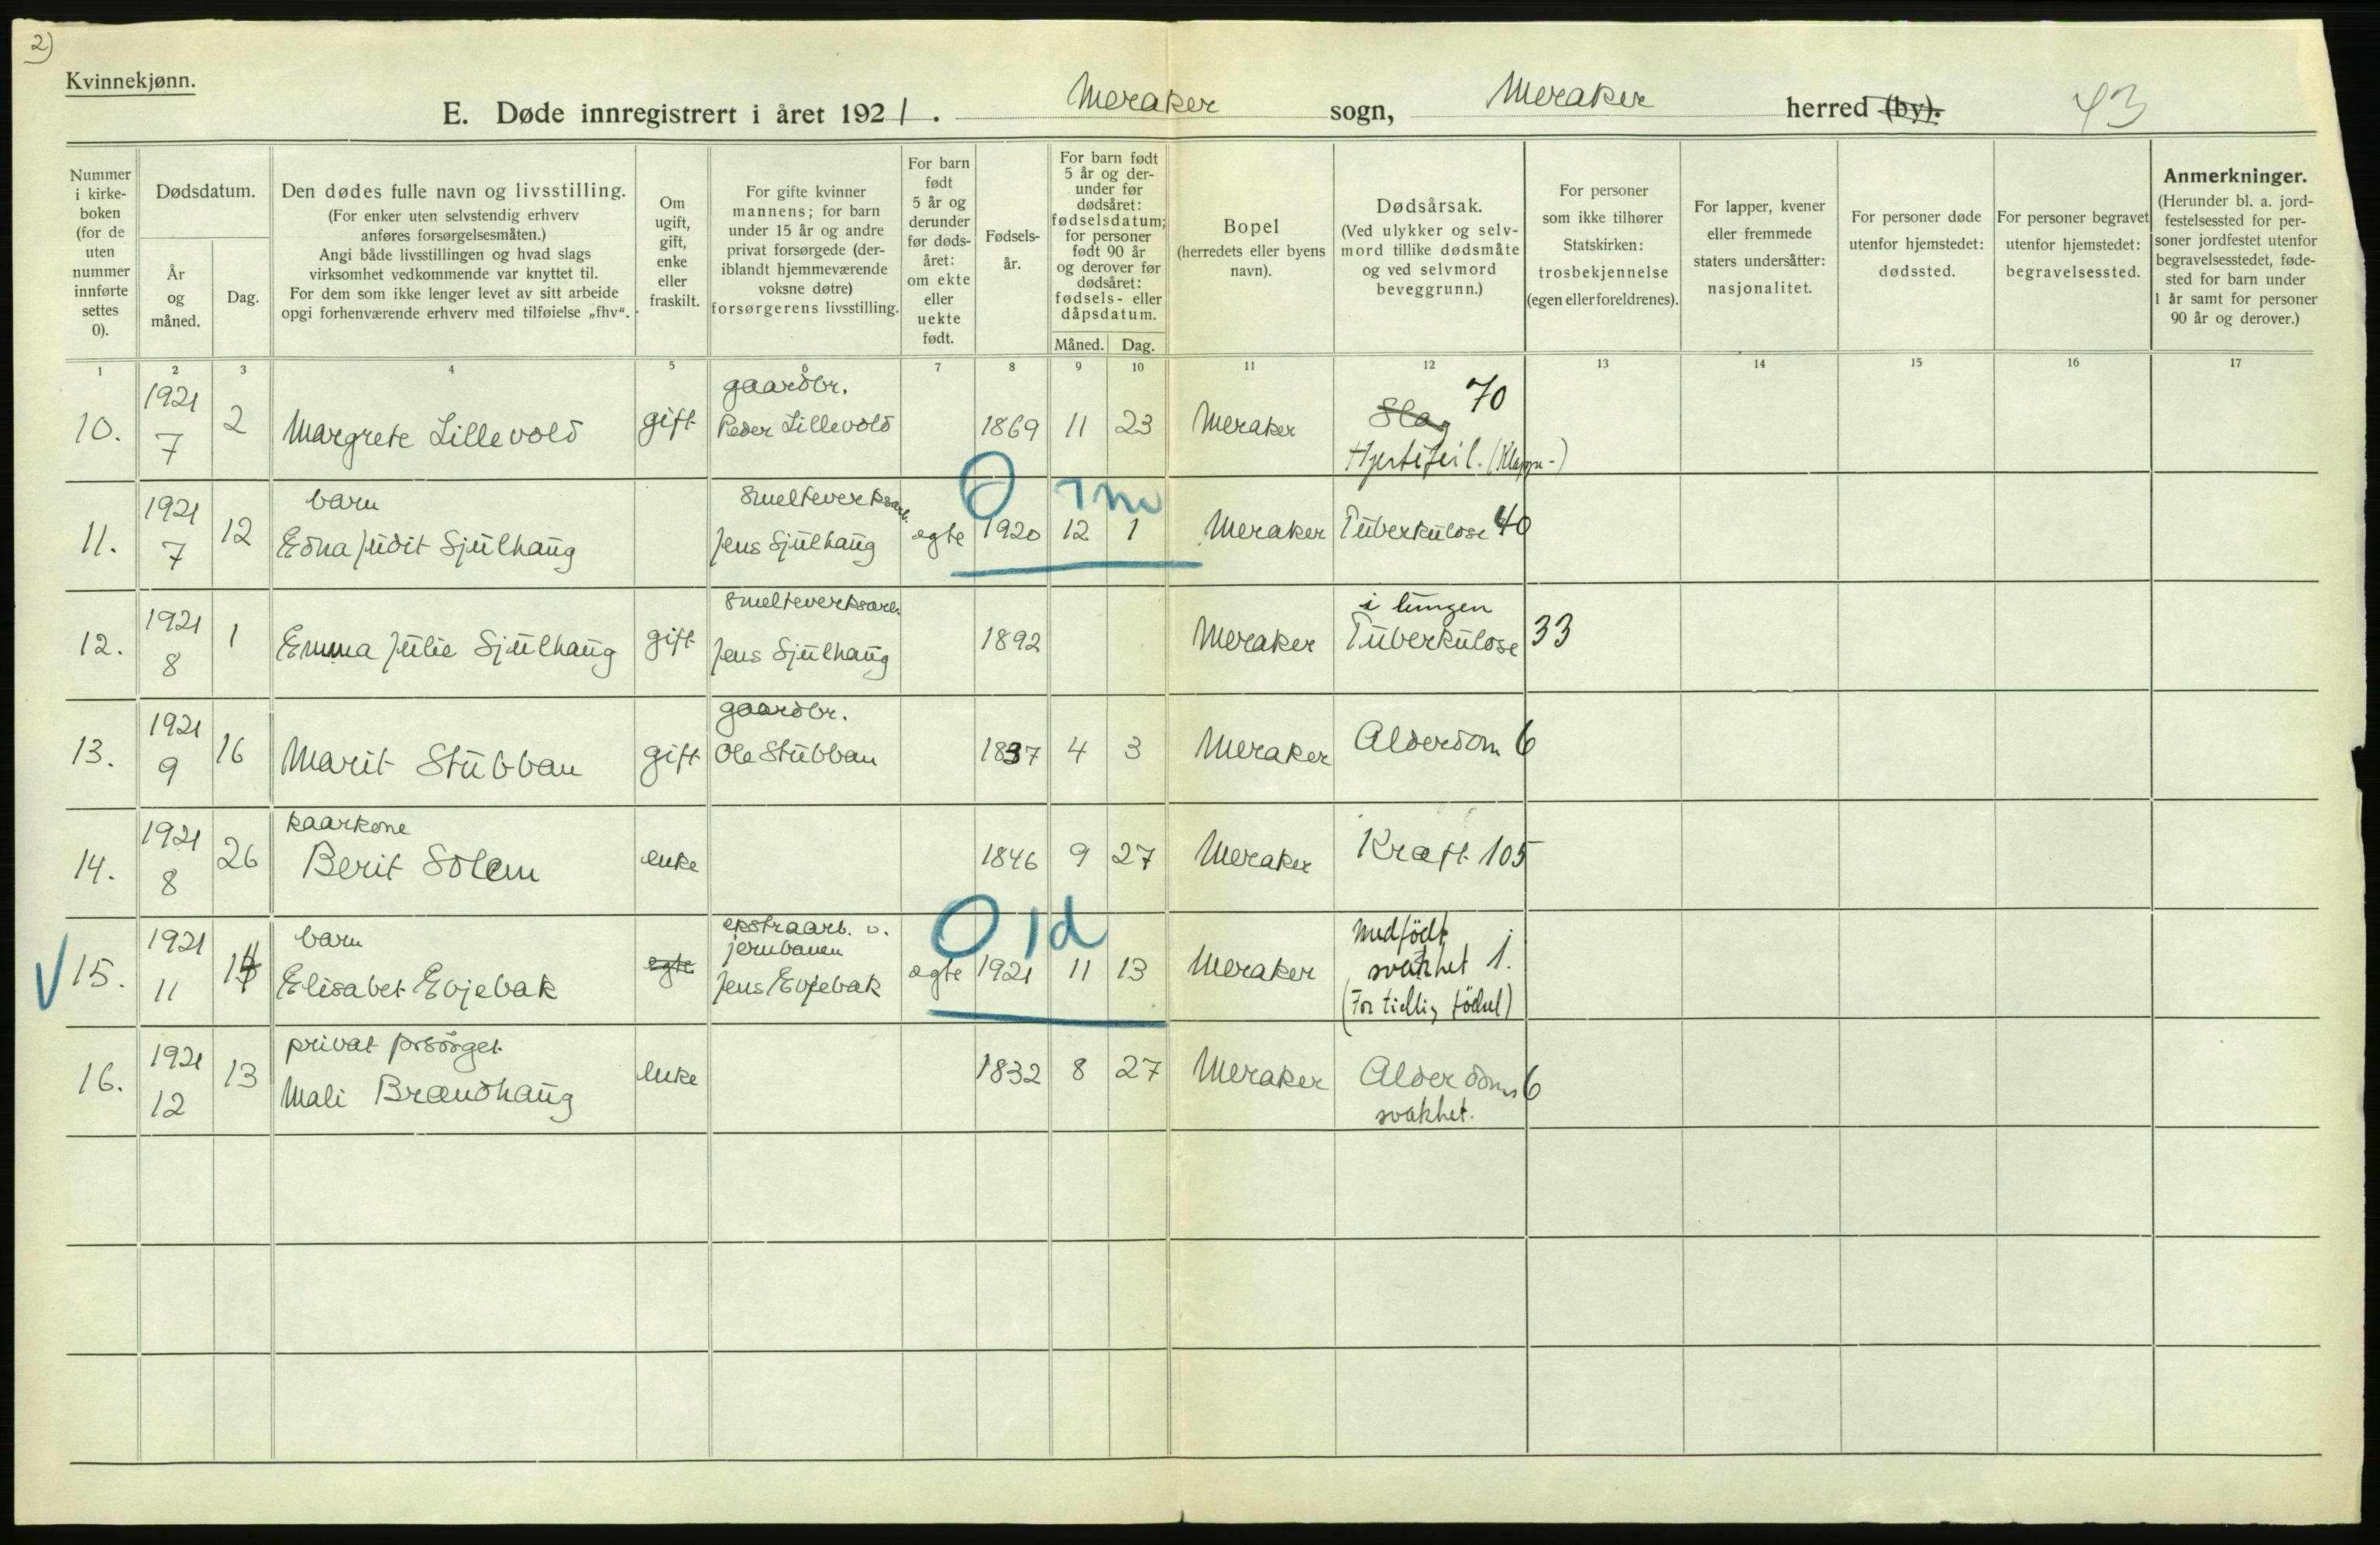 2)
Kvinnekjønn.
E. Døde innregistrert i året 1921. Meraker sogn, Meraker herred (by). 43
Nummer i kirke- boken (for de uten nummer innførte settes 0).
Dødsdatum.
År og måned.
Dag.
Den dødes fulle navn og livsstilling.
(For enker uten selvstendig erhverv anføres forsørgelsesmåten.)
Angi både livsstillingen og hvad slags virksomhet vedkommende var knyttet til.
For dem som ikke lenger levet av sitt arbeide opgi forhenværende erhverv med tilføielse „fhv“.
Om ugift, gift, enke eller fraskilt.
For gifte kvinner mannens; for barn under 15 år og andre privat forsørgede (der- iblandt hjemmeværende voksne døtre) forsørgerens livsstilling.
For barn født 5 år og derunder før døds- året: om ekte eller uekte født.
Fødsels- år.
For barn født 5 år og der- under før dødsåret: fødselsdatum; for personer født 90 år og derover før dødsåret: fødsels- eller dåpsdatum.
Måned. Dag.
Bopel (herredets eller byens navn).
Dødsårsak. (Ved ulykker og selv- mord tillike dødsmåte og ved selvmord beveggrunn.)
For personer som ikke tilhører Statskirken: trosbekjennelse (egen eller foreldrenes).
For lapper, kvener eller fremmede staters undersåtter: nasjonalitet.
For personer døde utenfor hjemstedet: dødssted.
For personer begravet utenfor hjemstedet: begravelsessted.
Anmerkninger. (Herunder bl. a. jord- festelsessted for per- soner jordfestet utenfor begravelsesstedet, føde- sted for barn under 1 år samt for personer 90 år og derover.)
1 2 3 4 5 6 7 8 9 10 11 12 13 14 15 16 17
10. 1921 7 2 Margrete Lillevold gift gaardbr. Peder Lillevold 1869 11 23 Meraker Slag 70 Hjertefeil. (Klappe-)
11. 1921 7 12 barn Edna Judit Sjulhaug smelteverksarb. Jens Sjulhaug ægte 0 7 m 1920 12 1 Meraker Tuberkulose 40
12. 1921 8 1 Emma Julie Sjulhaug gift smelteverksarb. Jens Sjulhaug 1892 Meraker i lungen Tuberkulose 33
13. 1921 9 16 Marit Stubban gift gaardbr. Ole Stubban 1837 4 3 Meraker Alderdom 6
14. 1921 8 26 kaarkone Berit Solem enke 1846 9 27 Meraker Kræft 105
15. 1921 11 14 barn Elisabet Evjebak egte ekstraarb. v. jernbanen Jens Evjebak ægte 0 1d 1921 11 13 Meraker Medfödt svakhet 1. (For tidlig födsel)
16. 1921 12 13 privat forsörget Mali Brændhaug enke 1832 8 27 Meraker Alderdoms 6 svakhet.